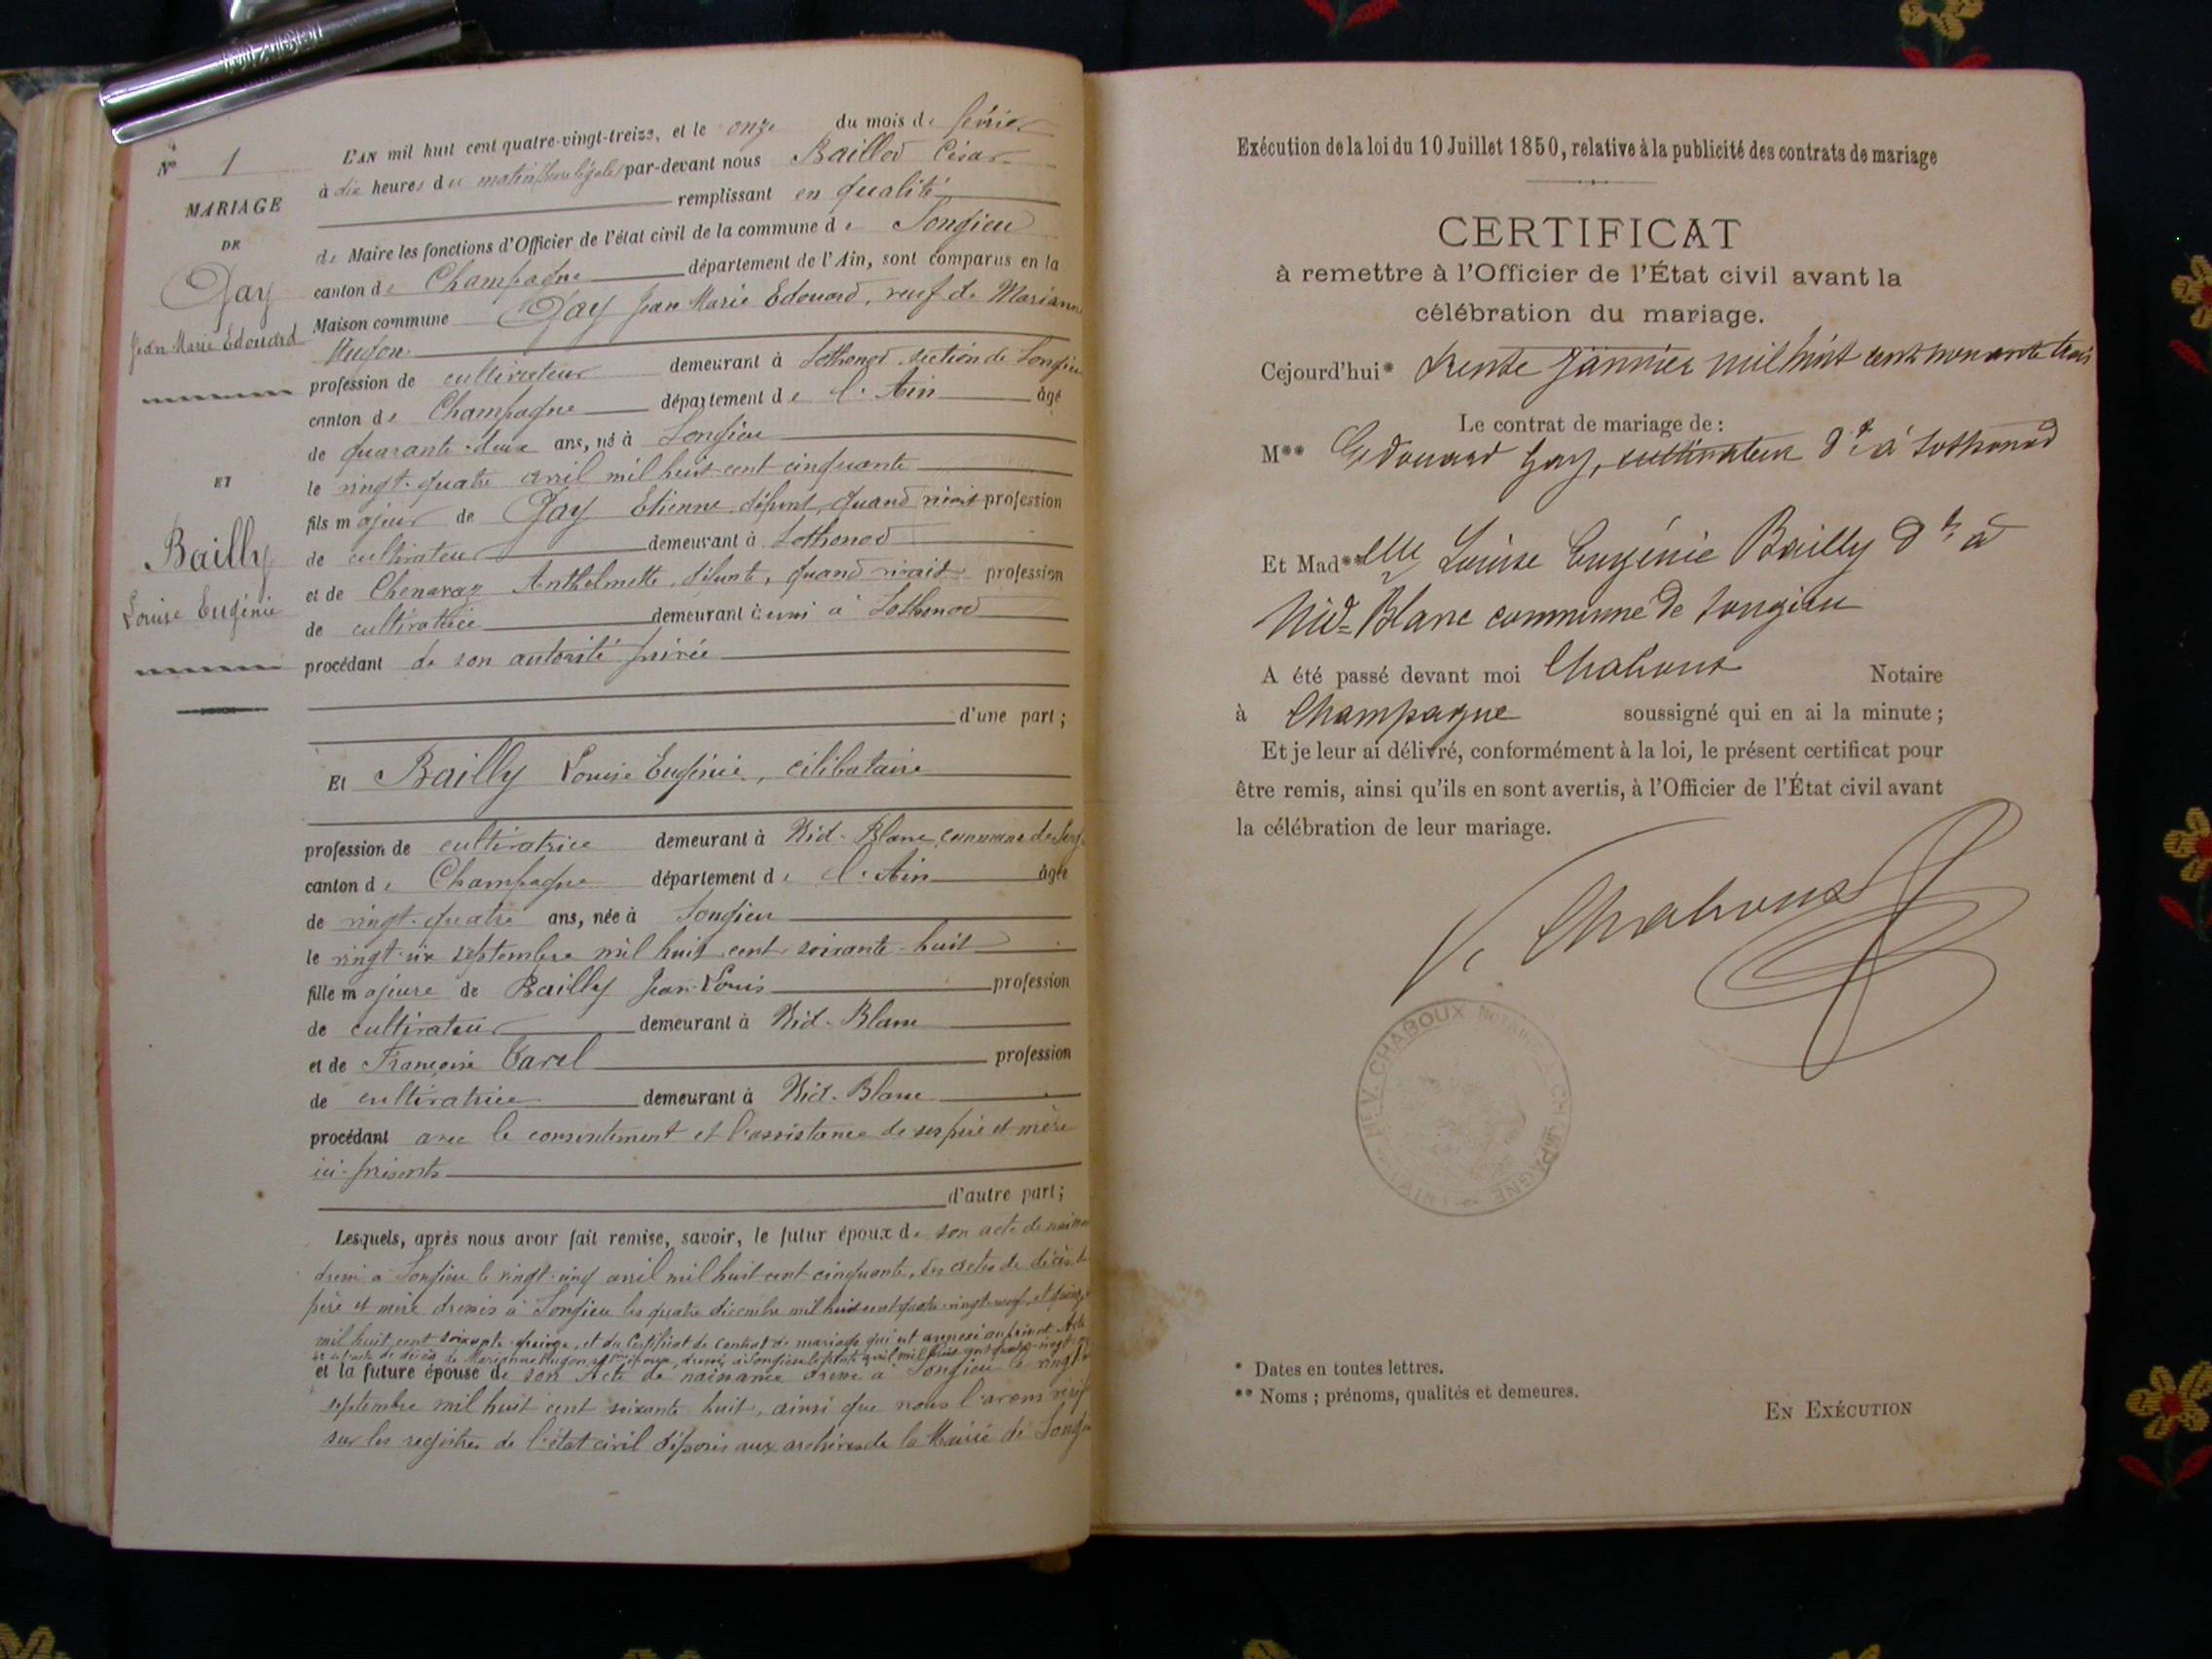 N° 1
MARIAGE
DE
Gay
Jean Marie Edouard
ET
Bailly
Louise Eugénie
L'AN mil huit cent quatre-vingt-treize, et le onze du mois de février
à dix heures du matin (heure légale) par-devant nous Baillod César
remplissant en qualité
de Maire les fonctions d'Officier de l'état civil de la commune de Songieu
canton de Champagne département de l'Ain, sont comparus en la
Maison commune Gay Jean Marie Edouard, veuf de Marianne
Hugon
profession de cultivateur demeurant à Lothonod section de Songieu
canton de Champagne département de l'Ain âgé
de quarante-deux ans, né à Songieu
le vingt-quatre avril mil huit cent cinquante
fils majeur de Gay Etienne, défunt, quand vivait profession
de cultivateur demeurant à Lothonod
et de Chenavaz Anthelmette, défunte, quand vivait profession
de cultivatrice demeurant aussi à Lothonod
procédant de son autorité privée
d'une part;
Et Bailly Louise Eugénie, célibataire
profession de cultivatrice demeurant à Nid-Blanc, commune de
canton de Champagne département de l'Ain âgée
de vingt-quatre ans, née à Songieu
le vingt-six septembre mil huit cent soixante-huit
fille majeure de Bailly Jean-Louis profession
de cultivateur demeurant à Nid-Blanc
et de Françoise Carel profession
de cultivatrice demeurant à Nid-Blanc
procédant avec le consentement et l'assistance de ses père et mère
ici-présents
d'autre part;
Lesquels, après nous avoir fait remise, savoir, le futur époux de son acte de
dressé à Songieu le vingt-cinq avril mil huit cent cinquante, des actes de décès de
père et mère dressés à Songieu les quatre décembre mil huit cent quatre-vingt-neuf, et
mil huit cent soixante-quinze, et du Certificat de Contrat de mariage qui est annexé au présent Acte
et l'acte de décès de Marianne Hugon, épouse, dressé à Songieu le avril mil huit cent quatre-vingt
et la future épouse de son Acte de naissance dressé à Songieu le vingt
septembre mil huit cent soixante huit, ainsi que nous l'avons
sur les registres de l'état civil déposés aux archives de la Mairie de
Exécution de la loi du 10 Juillet 1850, relative à la publicité des contrats de mariage
CERTIFICAT
à remettre à l'Officier de l'État civil avant la
célébration du mariage.
Cejourd'hui* trente janvier mil huit cent nonante trois
Le contrat de mariage de :
M** Edouard Gay, cultivateur dt à Lothonod
Et Mad**elle Louise Eugénie Bailly dt à
Nid-Blanc commune de Songieu
A été passé devant moi Chaboux Notaire
à Champagne soussigné qui en ai la minute ;
Et je leur ai délivré, conformément à la loi, le présent certificat pour
être remis, ainsi qu'ils en sont avertis, à l'Officier de l'État civil avant
la célébration de leur mariage.
V. Chaboux
Me V. CHABOUX NOTAIRE CHAMPAGNE (AIN)
* Dates en toutes lettres.
** Noms ; prénoms, qualités et demeures.
EN EXÉCUTION